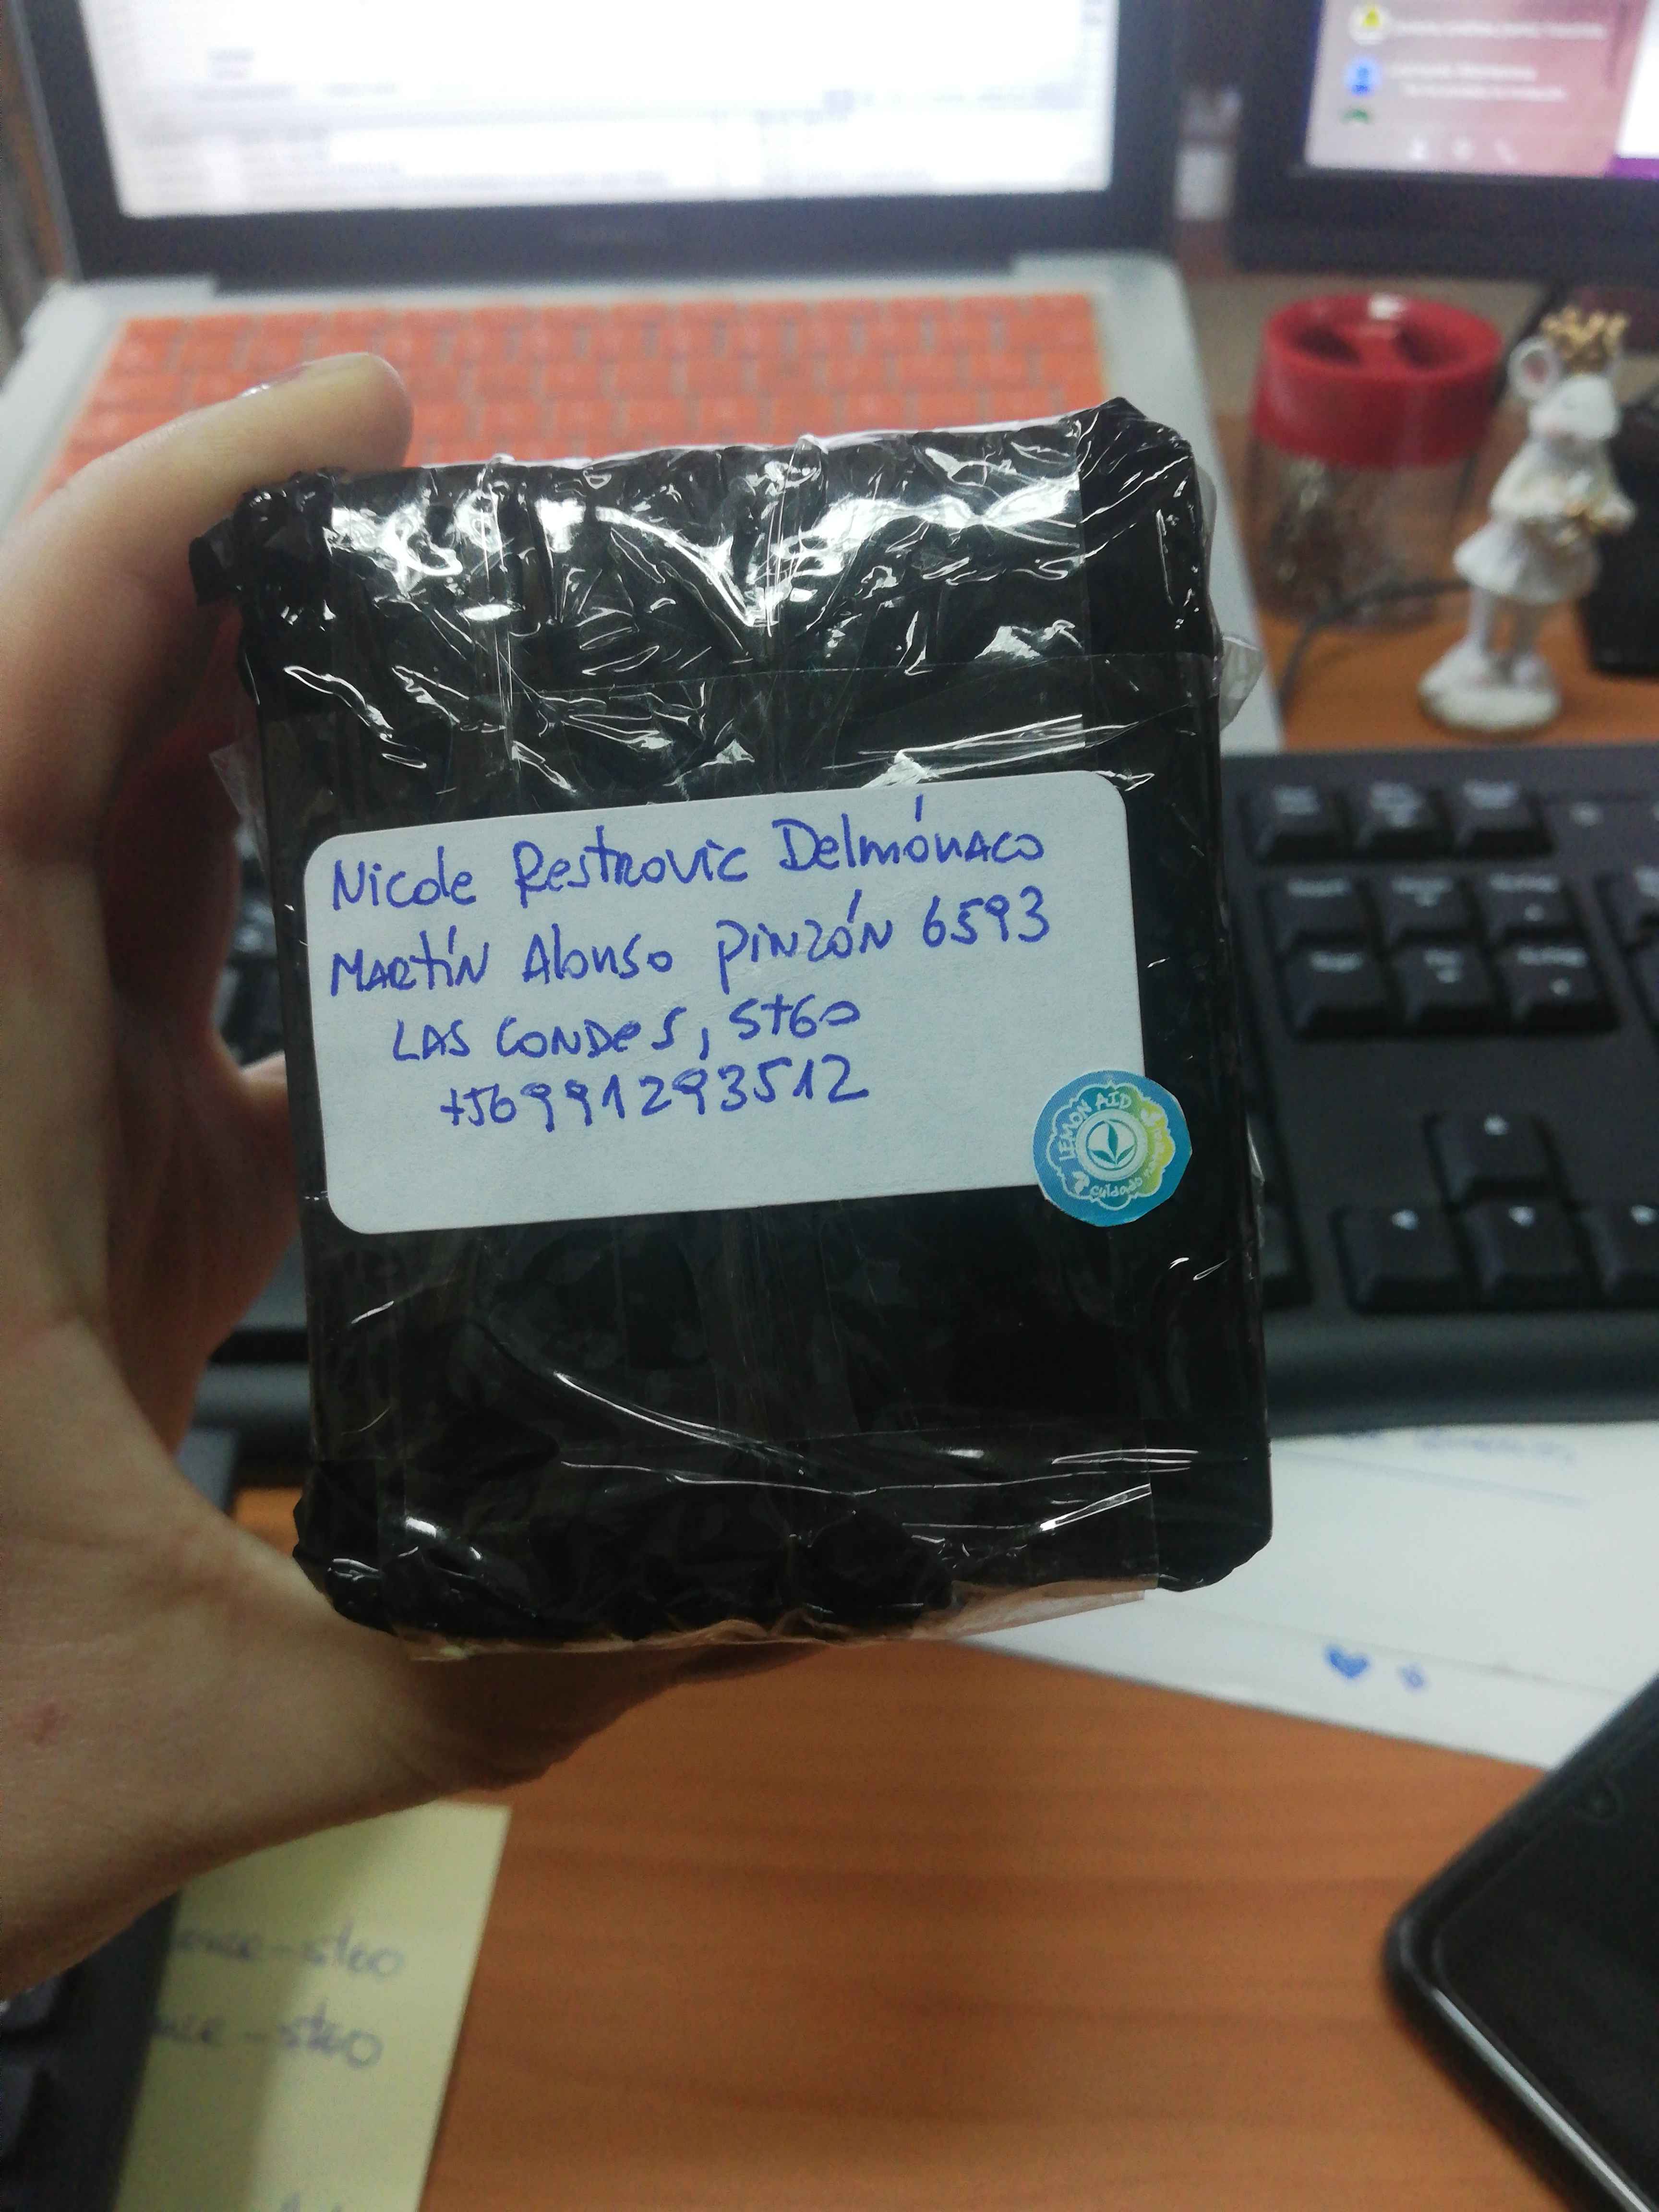 Nicole Restrovic Delmónaco
Martín Alonso Pinzón 6593
Las Condes, Stgo
+56991293512
LEMON AID
cuidado
stgo
stgo